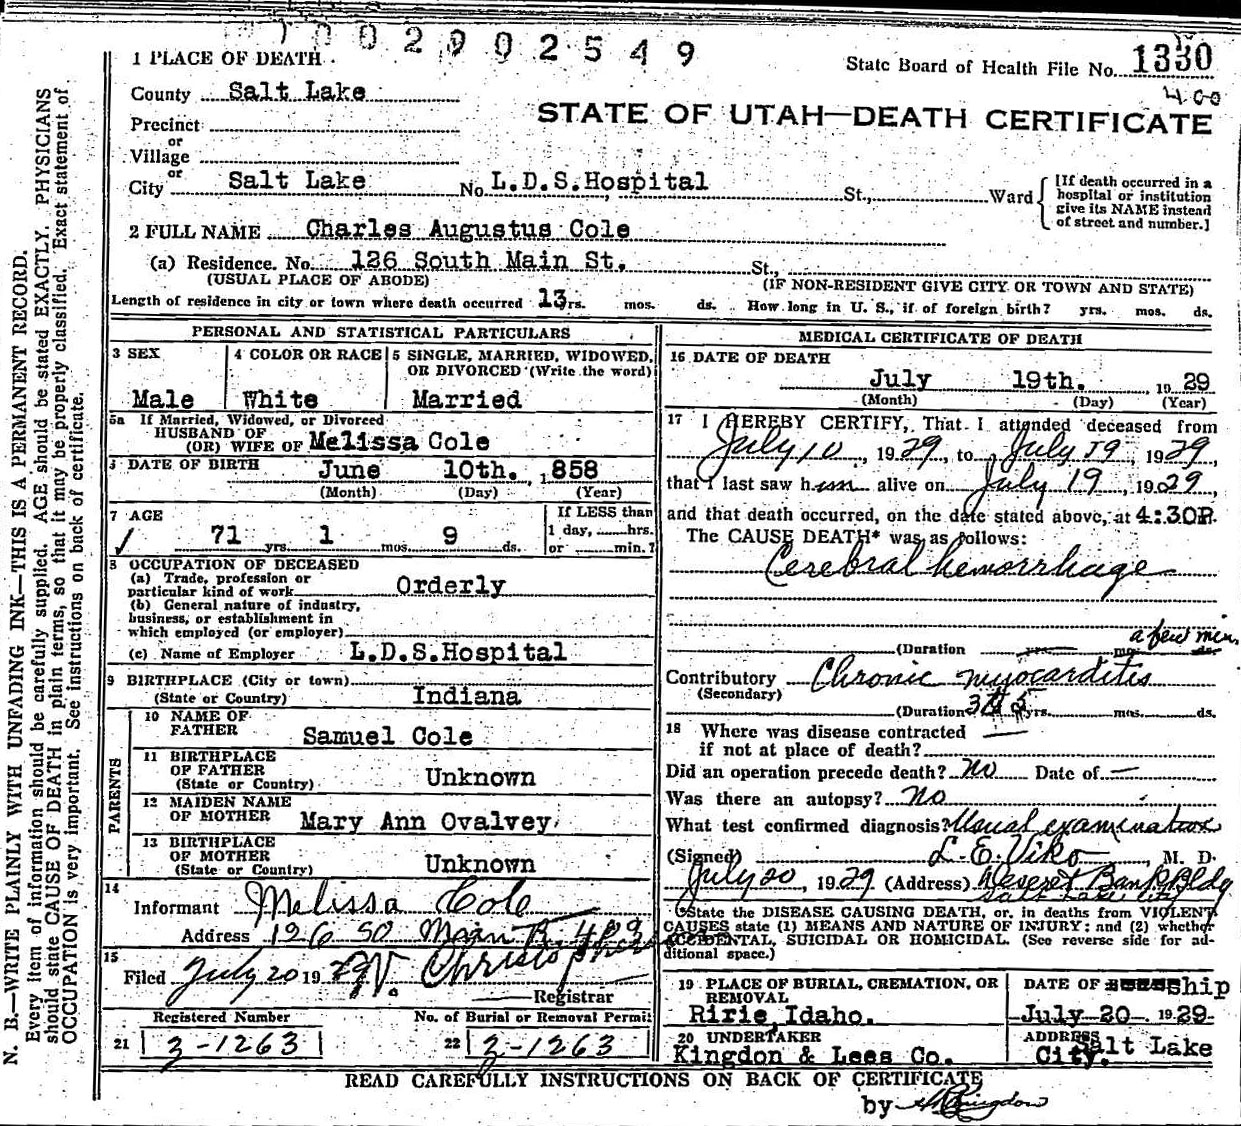 1002902549
1 PLACE OF DEATH
State Board of Health File No. 1330
400
County Salt Lake
STATE OF UTAH—DEATH CERTIFICATE
Precinct
or
Village
or
City Salt Lake No. L.D.S.Hospital St., Ward
[If death occurred in a
hospital or institution
give its NAME instead
of street and number.]
2 FULL NAME Charles Augustus Cole
(a) Residence. No. 126 South Main St. St.,
(USUAL PLACE OF ABODE) (IF NON-RESIDENT GIVE CITY OR TOWN AND STATE)
Length of residence in city or town where death occurred 13 yrs. mos. ds. How long in U. S., if of foreign birth? yrs. mos. ds.
PERSONAL AND STATISTICAL PARTICULARS
3 SEX
Male
4 COLOR OR RACE
White
5 SINGLE, MARRIED, WIDOWED,
OR DIVORCED (Write the word)
Married
5a If Married, Widowed, or Divorced
HUSBAND OF
(OR) WIFE OF Melissa Cole
DATE OF BIRTH June 10th. 1858
(Month) (Day) (Year)
7 AGE
71 yrs. 1 mos. 9 ds.
If LESS than
1 day, hrs.
or min.?
8 OCCUPATION OF DECEASED
(a) Trade, profession or
particular kind of work Orderly
(b) General nature of industry,
business, or establishment in
which employed (or employer)
(c) Name of Employer L.D.S.Hospital
9 BIRTHPLACE (City or town)
(State or Country) Indiana
PARENTS
10 NAME OF
FATHER Samuel Cole
11 BIRTHPLACE
OF FATHER
(State or Country) Unknown
12 MAIDEN NAME
OF MOTHER Mary Ann Ovalvey
13 BIRTHPLACE
OF MOTHER
(State or Country) Unknown
14
Informant Melissa Cole
Address 126 So Main R. 409
15
Filed July 20 1929
Registrar
Registered Number No. of Burial or Removal Permit
21 2-1263 22 2-1263
MEDICAL CERTIFICATE OF DEATH
16 DATE OF DEATH
July 19th. 1929
(Month) (Day) (Year)
17 I HEREBY CERTIFY, That I attended deceased from
July 10, 1929, to July 19, 1929,
that I last saw him alive on July 19, 1929,
and that death occurred, on the date stated above, at 4:30P.
The CAUSE DEATH* was as follows:
Cerebral hemorrhage
a few min.
(Duration yrs. mos. ds.
Contributory Chronic myocarditis
(Secondary)
(Duration 3 to 5 yrs. mos. ds.
18 Where was disease contracted
if not at place of death? —
Did an operation precede death? No Date of —
Was there an autopsy? No
What test confirmed diagnosis? Usual examination
(Signed) L. E. Viko, M. D.
July 20, 1929 (Address) Deseret Bank Bldg
Salt Lake City
*State the DISEASE CAUSING DEATH, or, in deaths from VIOLENT
CAUSES state (1) MEANS AND NATURE OF INJURY; and (2) whether
ACCIDENTAL, SUICIDAL OR HOMICIDAL. (See reverse side for ad-
ditional space.)
19 PLACE OF BURIAL, CREMATION, OR
REMOVAL
Ririe, Idaho.
DATE OF Ship
July 20 1929
20 UNDERTAKER
Kingdon & Lees Co.
ADDRESS Salt Lake
City.
READ CAREFULLY INSTRUCTIONS ON BACK OF CERTIFICATE
by
N. B.—WRITE PLAINLY WITH UNFADING INK—THIS IS A PERMANENT RECORD.
Every item of information should be carefully supplied. AGE should be stated EXACTLY. PHYSICIANS
should state CAUSE OF DEATH in plain terms, so that it may be properly classified. Exact statement of
OCCUPATION is very important. See instructions on back of certificate.